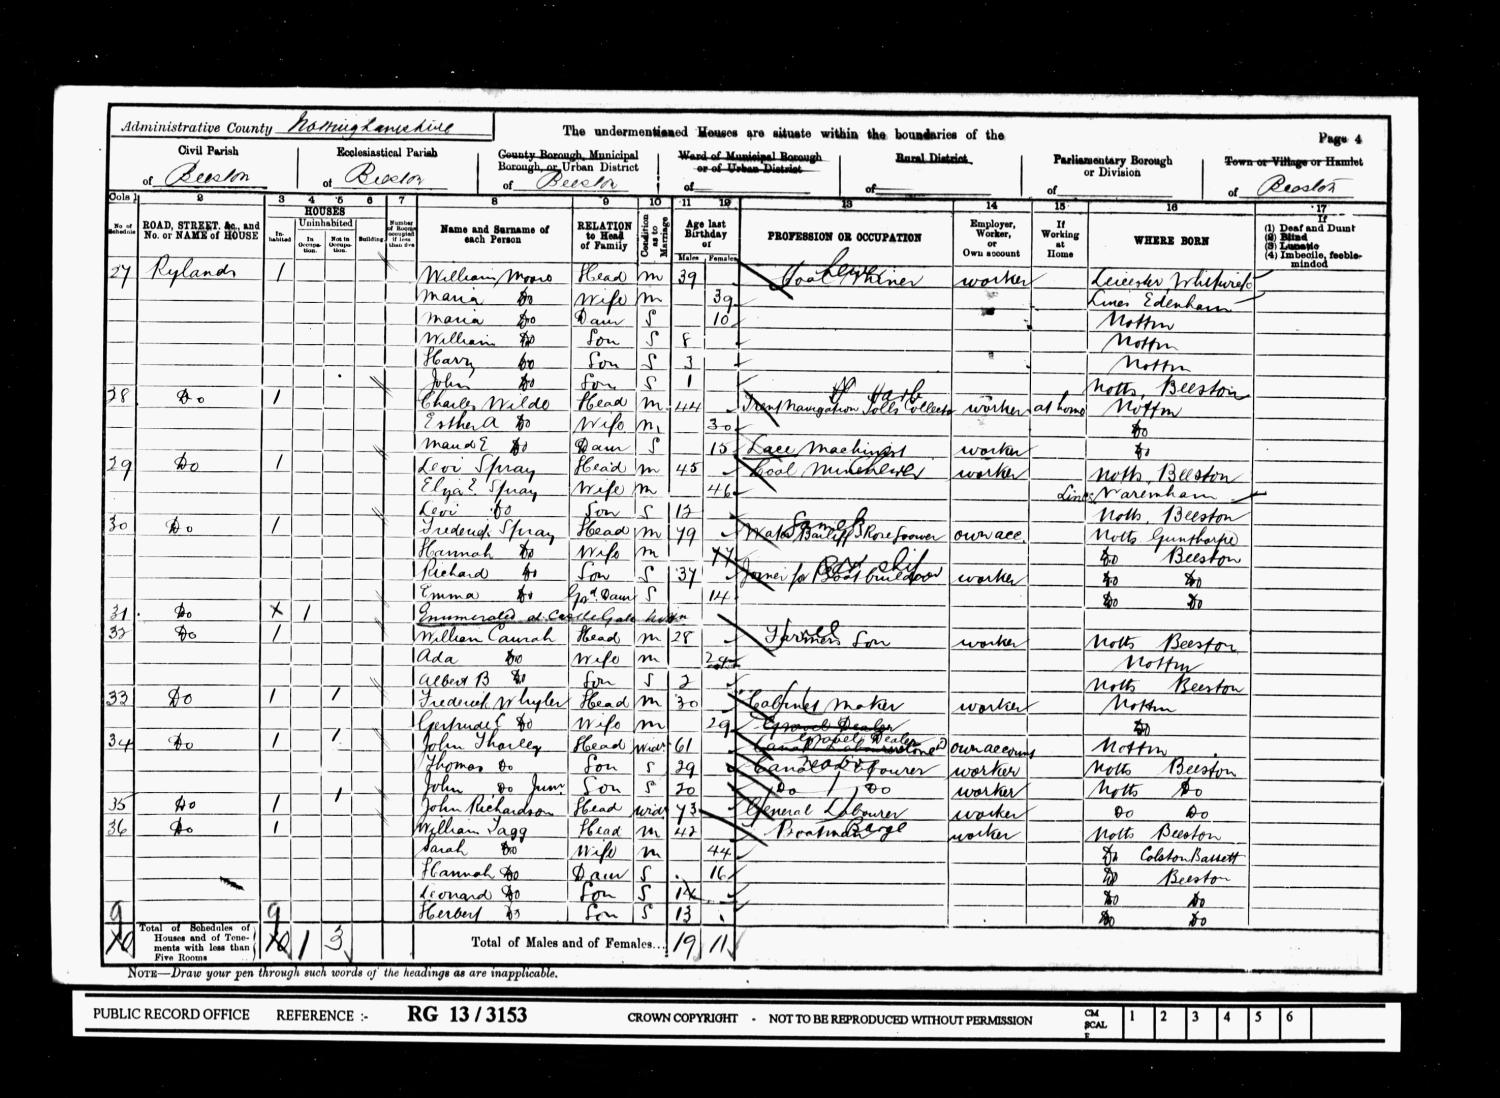 Administrative County Nottinghamshire
The undermentioned Houses are situate within the boundaries of the
Page 4
Civil Parish
of Beeston
Ecclesiastical Parish
of Beeston
County Borough, Municipal Borough, or Urban District
of Beeston
Ward of Municipal Borough or of Urban District
of
Rural District
of
Parliamentary Borough or Division
of
Town or Village or Hamlet
of Beeston
Cols 1 2 3 4 5 6 7 8 9 10 11 12 13 14 15 16 17
No of Schedule
ROAD, STREET, &c., and No. or NAME of HOUSE
HOUSES
In-habited
Uninhabited
In Occupa-tion.
Not in Occupa-tion.
Building
Number of Rooms occupied if less than five
Name and Surname of each Person
RELATION to Head of Family
Condition as to Marriage
Age last Birthday of
Males Females
PROFESSION OR OCCUPATION
Employer, Worker, or Own account
If Working at Home
WHERE BORN
If
(1) Deaf and Dumb
(2) Blind
(3) Lunatic
(4) Imbecile, feeble-minded
27 Rylands 1 William Moore Head M 39 Coal Miner Hewer worker Leicester Whitwick
Maria Do Wife M 39 Lincs Edenham
Maria Do Daur S 10 Nottm
William Do Son S 8 Nottm
Harry Do Son S 3 Nottm
John Do Son S 1 Notts, Beeston
28 Do 1 Charles Wilde Head M 44 Trent Navigation Tolls Collector worker at home Nottm
Esther A Do Wife M 30 Do
Maud E Do Daur S 15 Lace Machinist worker Do
29 Do 1 Levi Spray Head M 45 Coal Miner Hewer worker Notts, Beeston
Eliza E. Spray Wife M 46 Lincs,
Levi Do Son S 12 Notts, Beeston
30 Do 1 Frederick Spray Head M 79 Water Bailiff own acc. Notts Gunthorpe
Hannah Do Wife M 77 Do Beeston
Richard Do Son S 37 Joiner for Boatbuilder worker Do Do
Emma Do Gd. Daur S 14 Do Do
31 Do X 1 Enumerated at Castle Gate Nottm
32 Do 1 William Head M 28 Farmers Son worker Notts Beeston
Ada Do Wife M Nottm
Albert B Do Son S 2 Notts Beeston
33 Do 1 1 Frederick Head M 30 Cabinet Maker worker Nottm
Gertrude E Do Wife M 29 Do
34 Do 1 1 John Thorley Head Widr 61 Gravel Dealer own account Nottm
Thomas Do Son S 29 Canal Labourer worker Notts Beeston
John Do Junr Son S 20 Do Do worker Notts Do
35 Do 1 1 John Richardson Head Widr 73 General Labourer worker Do Do
36 Do 1 William Tagg Head M 42 Boatman Barge worker Notts Beeston
Sarah Do Wife M 44 Do Colston Bassett
Hannah Do Daur S 16 Do Beeston
Leonard Do Son S 14 Do Do
Herbert Do Son S 13 Do Do
9 9
Total of Schedules of Houses and of Tene-ments with less than Five Rooms
10 10 1 3
Total of Males and of Females... 19 11
NOTE—Draw your pen through such words of the headings as are inapplicable.
PUBLIC RECORD OFFICE REFERENCE :- RG 13 / 3153 CROWN COPYRIGHT - NOT TO BE REPRODUCED WITHOUT PERMISSION CM SCALE 1 2 3 4 5 6